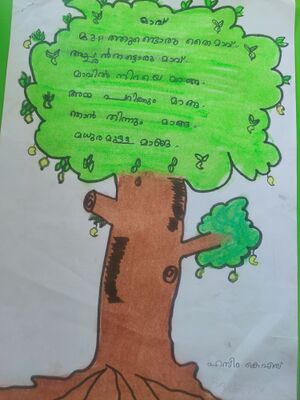 മാവ്
മുറ്റത്തുണ്ടൊരു തൈമാവ്.
അച്ഛൻനട്ടൊരു മാവ്.
മാവിൽ നിറയെ മാങ്ങ.
അമ്മ പറിക്കും മാങ്ങ.
ഞാൻ തിന്നും മാങ്ങ.
മധുരമുള്ള മാങ്ങ.